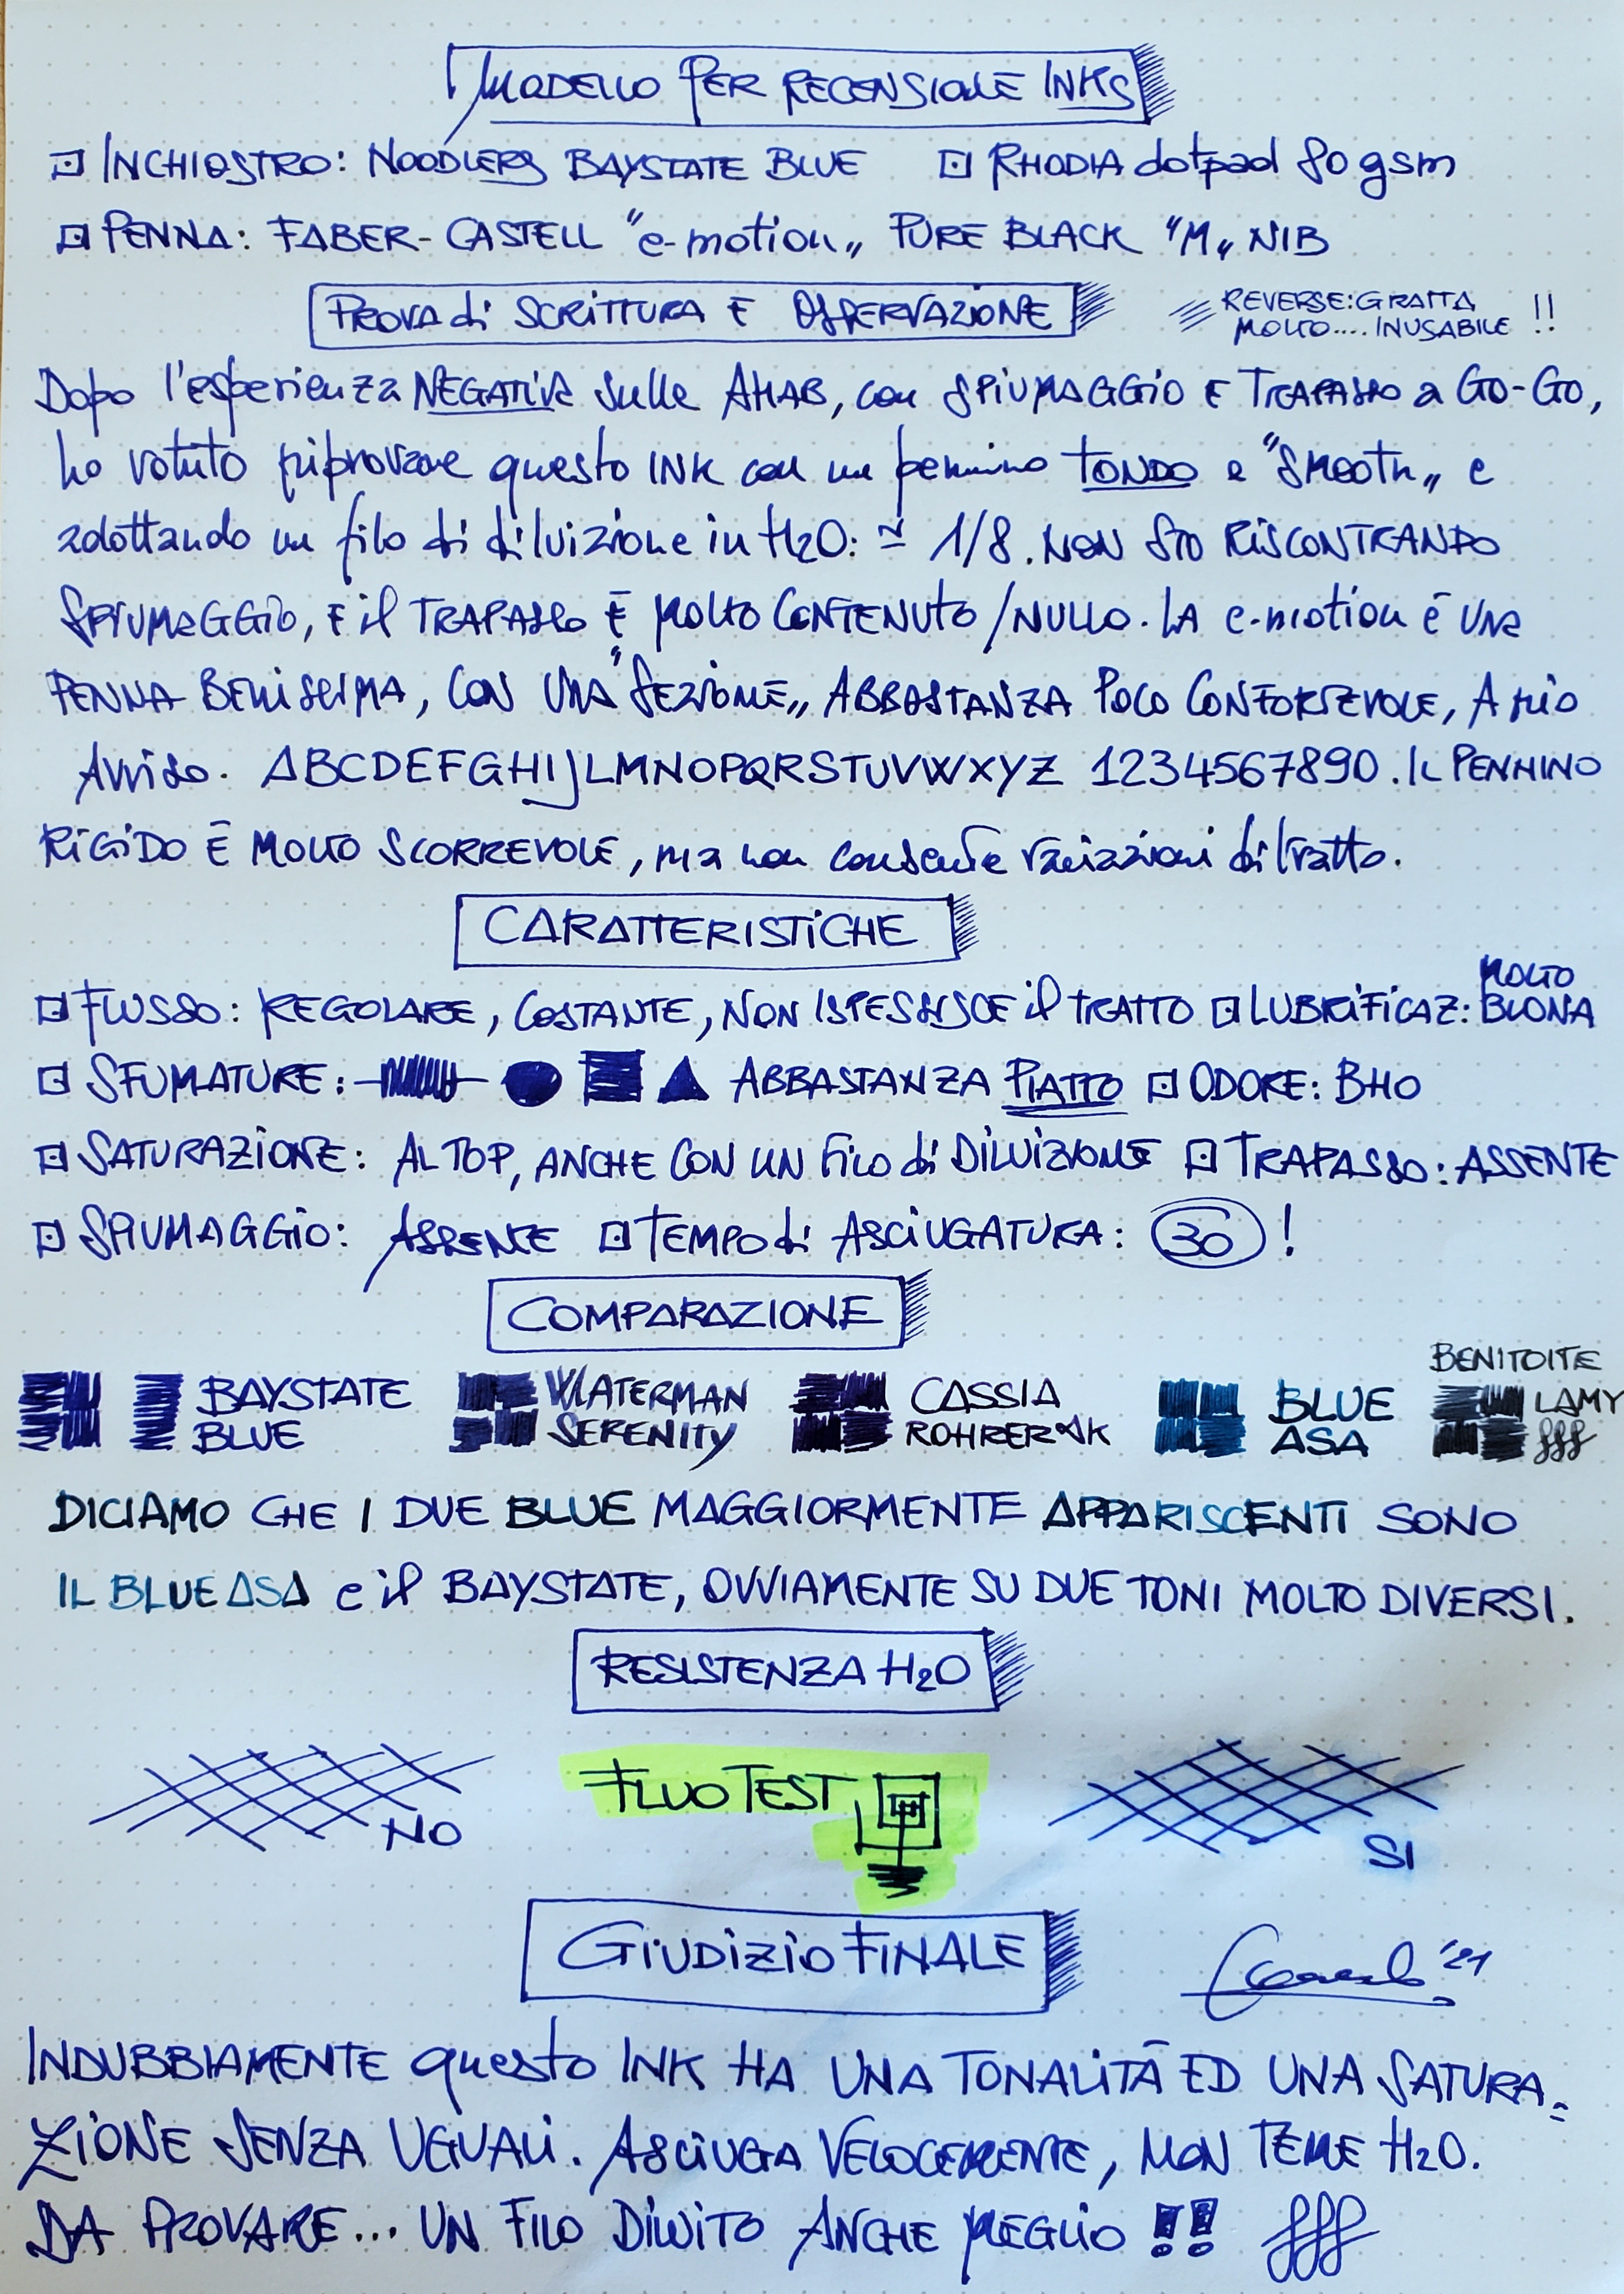 MODELLO PER RECENSIONE INKS
INCHIOSTRO: NOODLERS BAYSTATE BLUE RHODIA dotpad 80 gsm
PENNA: FABER-CASTELL "e-motion„ PURE BLACK "M„ NIB
PROVA di SCRITTURA E OSSERVAZIONE
REVERSE: GRATTA
MOLTO.... INUSABILE !!
Dopo l'esperienza NEGATIVA sulle AHAB, con SPIUMAGGIO E TRAPASSO a GO-GO,
ho voluto riprovare questo INK con un pennino TONDO e "SMOOTH„ e
adottando un filo di diluizione in H2O: ≃ 1/8. NON STO RISCONTRANDO
SPIUMAGGIO, E il TRAPASSO È MOLTO CONTENUTO/NULLO. LA e-motion è UNA
PENNA BELLISSIMA, CON UNA "SEZIONE„ ABBASTANZA POCO CONFORTEVOLE, A MIO
AVVISO. ABCDEFGHIJLMNOPQRSTUVWXYZ 1234567890. IL PENNINO
RIGIDO È MOLTO SCORREVOLE, ma non consente variazioni di tratto.
CARATTERISTICHE
FLUSSO: REGOLARE, COSTANTE, NON ISPESSISCE il TRATTO LUBRIFICAZ: MOLTO BUONA
SFUMATURE: ABBASTANZA PIATTO ODORE: BHO
SATURAZIONE: AL TOP, ANCHE CON UN FILO di DILUIZIONE TRAPASSO: ASSENTE
SPIUMAGGIO: ASSENTE TEMPO di ASCIUGATURA: 30 !
COMPARAZIONE
BAYSTATE BLUE
WATERMAN SERENITY
CASSIA ROHRER&K
BLUE ASA
BENITOITE LAMY
DICIAMO CHE I DUE BLUE MAGGIORMENTE APPARISCENTI SONO
IL BLUE ASA e il BAYSTATE, OVVIAMENTE SU DUE TONI MOLTO DIVERSI.
RESISTENZA H2O
NO
FLUO TEST
SI
GIUDIZIO FINALE
'21
INDUBBIAMENTE questo INK HA UNA TONALITÀ ED UNA SATURA=
ZIONE SENZA UGUALI. ASCIUGA VELOCEMENTE, NON TEME H2O.
DA PROVARE... UN FILO DILUITO ANCHE MEGLIO !!